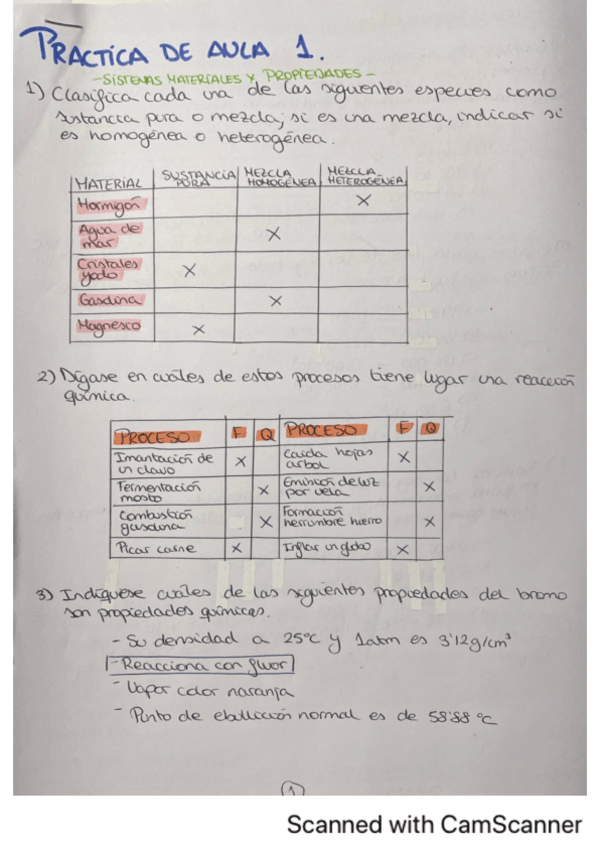 PRACTICA DE AULA 1.
-SISTEMAS MATERIALES Y PROPIEDADES-
1) Clasifica cada una de las siguientes especies como
sustancia pura o mezcla; si es una mezcla, indicar si
es homogénea o heterogénea.
MATERIAL SUSTANCIA PURA MEZCLA HOMOGÉNEA MEZCLA HETEROGÉNEA
Hormigón X
Agua de mar X
Cristales yodo X
Gasolina X
Magnesio X
2) Dígase en cuáles de estos procesos tiene lugar una reacción
química.
PROCESO F Q PROCESO F Q
Imantación de un clavo X Caída hojas arbol X
Fermentación mosto X Emisión de luz por vela X
Combustión gasolina X Formación herrumbre hierro X
Picar carne X Inflar un globo X
3) Indíquese cuáles de las siguientes propiedades del bromo
son propiedades químicas.
- Su densidad a 25°C y 1atm es 3'12g/cm³
- Reacciona con fluor
- Vapor color naranja
- Punto de ebullición normal es de 58'88 °C
1
Scanned with CamScanner